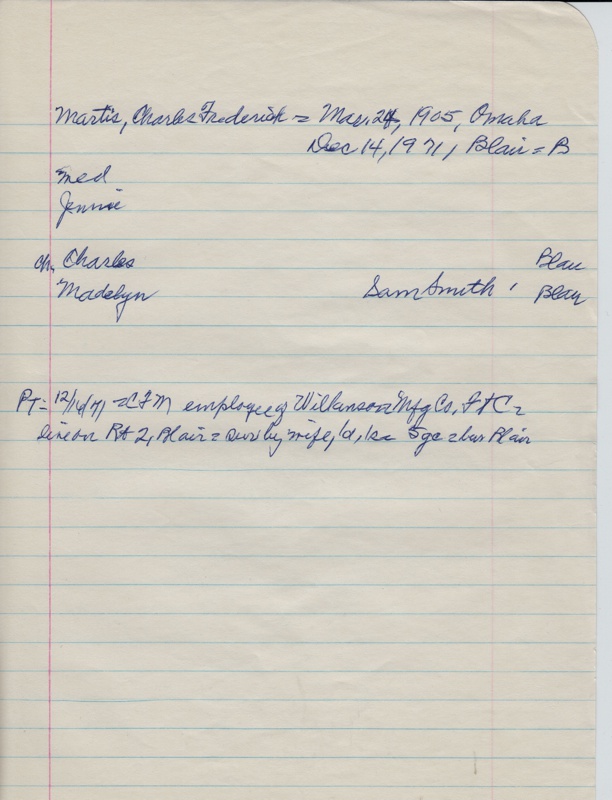 Martis, Charles Frederick = Mar. 24, 1905, Omaha
Dec 14, 1971, Blair = B
med
Jennie
ch. Charles Blair
Madelyn Sam Smith, Blair
PT = 12/16/71 = CFM employee of Wilkinson Mfg Co, Ft C =
live on Rt 2, Blair = surv by wife, 1d, 1s = 5gc = bur Blair